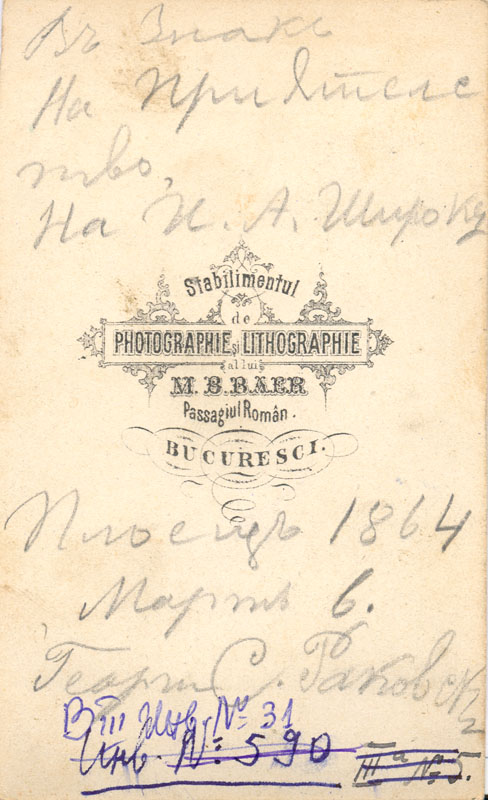 Въ Знакь
На Приятелс
тво,
На И. А. Широку
Stabilimentul
de
PHOTOGRAPHIE și LITHOGRAPHIE
al lui
M. B. BAER
Passagiul Român.
BUCURESCI.
Плоещъ 1864
Мартъ 6.
Георги С. Раковски
В III Инв. № 31
Инв. № 590
III а № 5.